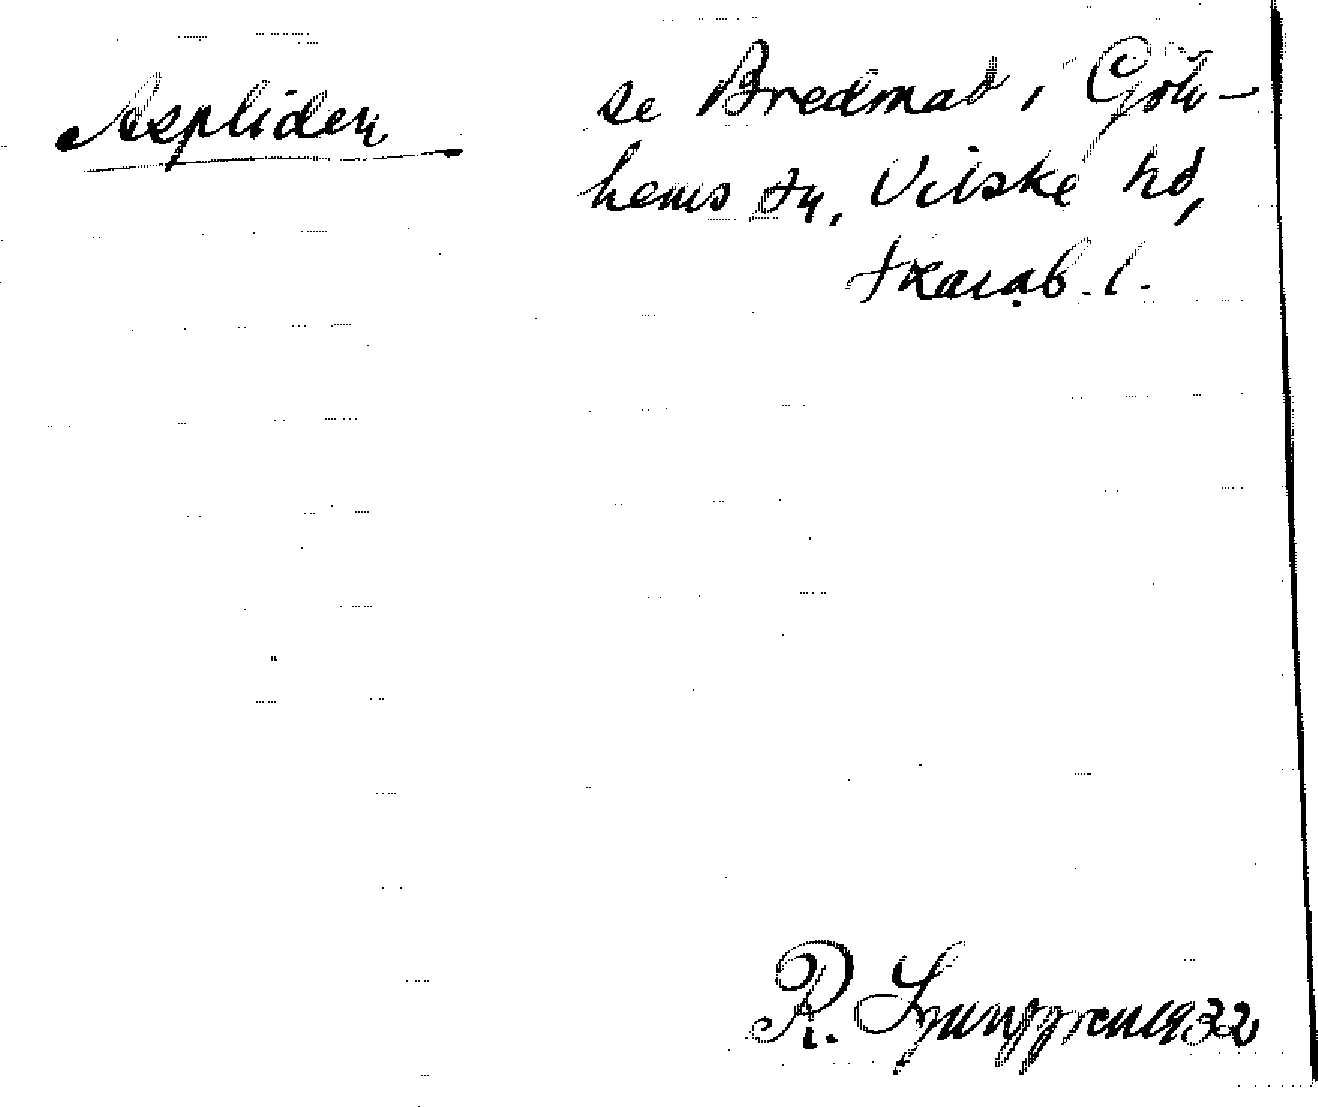 Aspliden se Bredmad i Göks-
hems sn, Vilske hd,
Skarab. l.
R. Ljunggren 1932